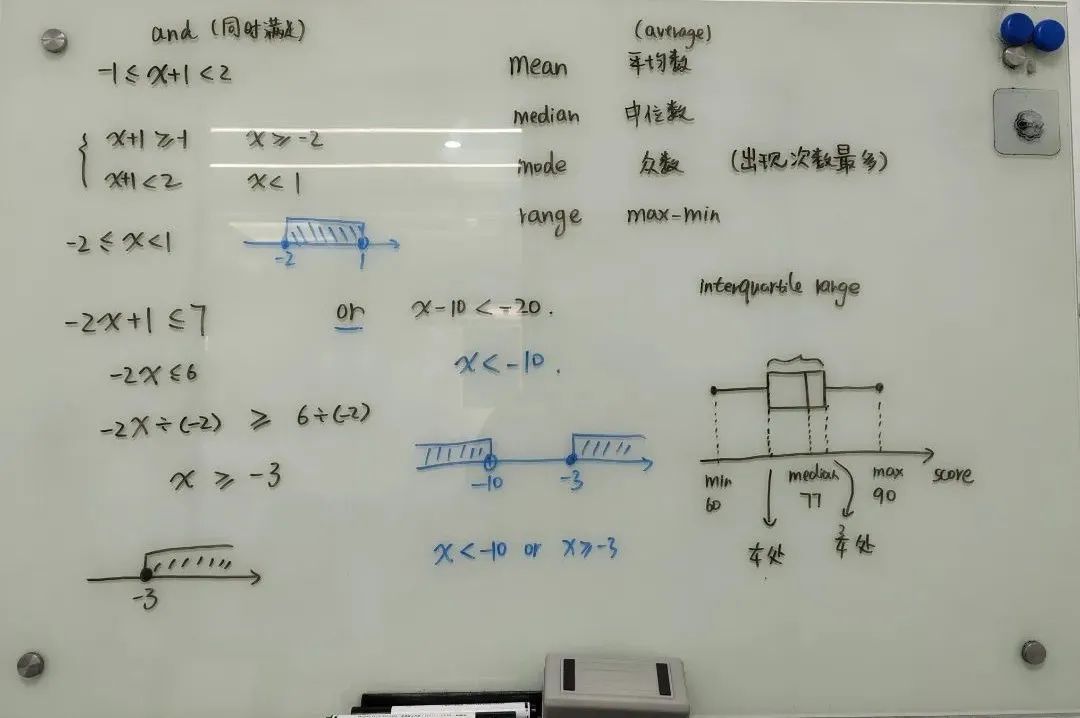 and (同时满足)
-1 ≤ x+1 < 2
{ x+1 ≥ -1 x ≥ -2
x+1 < 2 x < 1
-2 ≤ x < 1
-2 1
-2x+1 ≤ 7 or x-10 < -20.
-2x ≤ 6
x < -10.
-2x÷(-2) ≥ 6÷(-2)
x ≥ -3
-10 -3
x < -10 or x ≥ -3
-3
(average)
Mean 平均数
median 中位数
mode 众数 (出现次数最多)
range max-min
interquartile range
min median max score
60 77 90
1/4处 3/4处